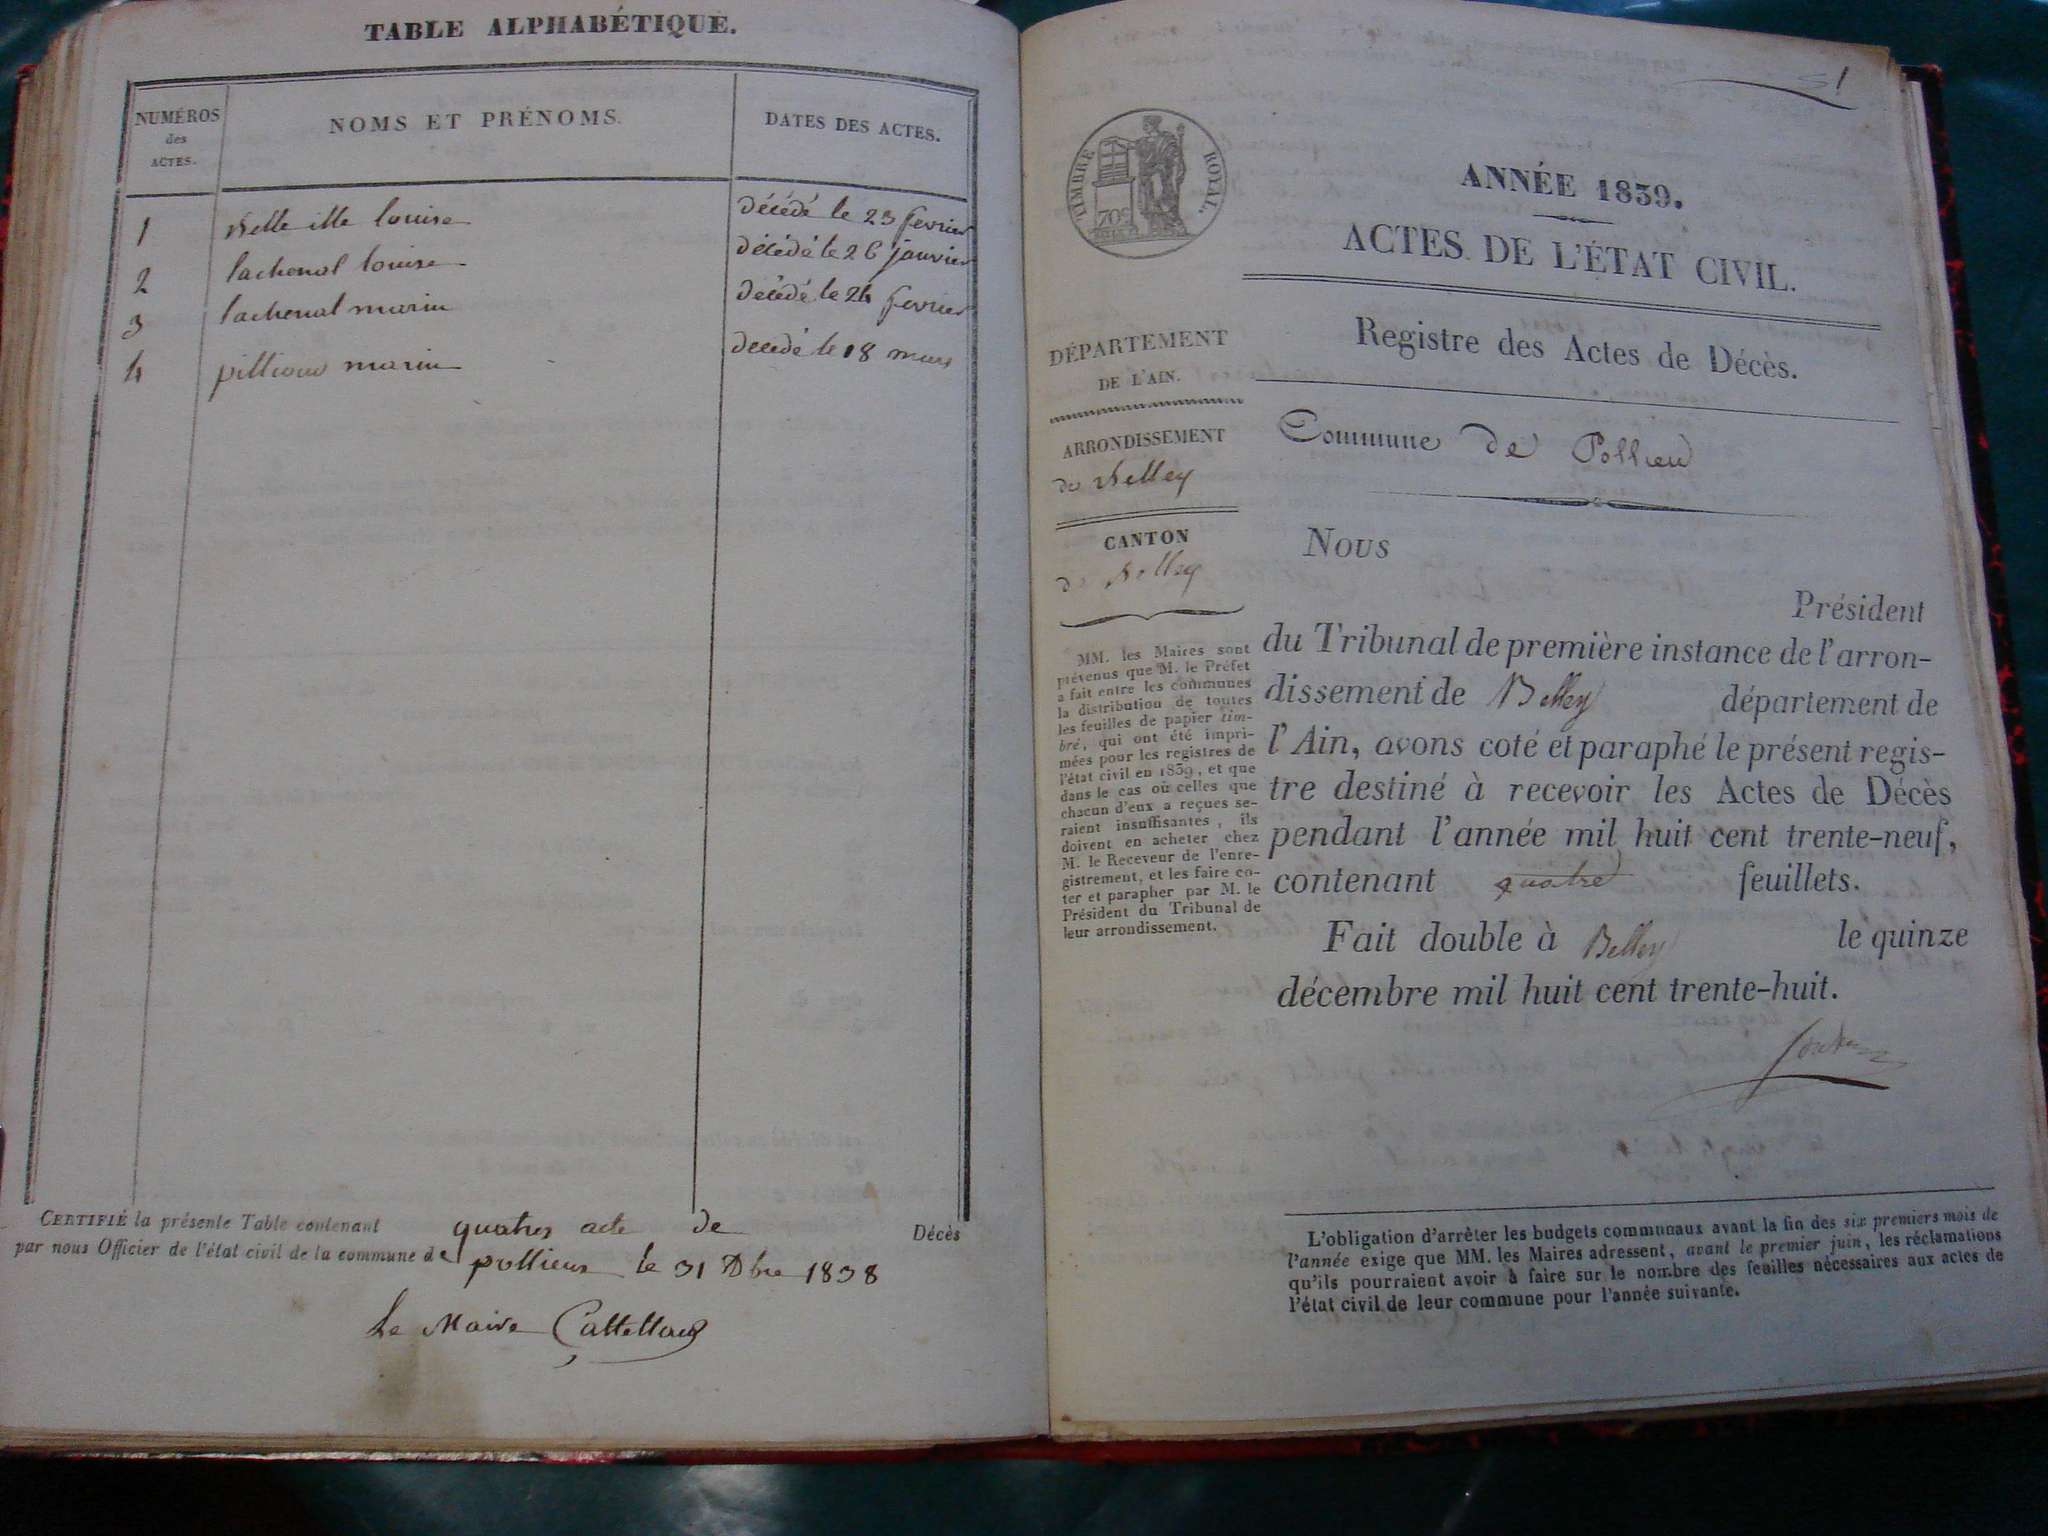 TABLE ALPHABÉTIQUE.
NUMÉROS
des
ACTES.
NOMS ET PRÉNOMS.
DATES DES ACTES.
1 louise décédé le 23 fevrier
2 lachenal louise décédé le 26 janvier
3 lachenal marin décédé le 24 fevrier
4 marin decedé le 18 mars
CERTIFIÉ la présente Table contenant quatres acte de Décès
par nous Officier de l'état civil de la commune de pollieux le 31 Dbre 1838
Le Maire
51
TIMBRE ROYAL.
70c
ANNÉE 1839.
ACTES DE L'ÉTAT CIVIL.
Registre des Actes de Décès.
Commune de Pollieu
DÉPARTEMENT
DE L'AIN.
ARRONDISSEMENT
de Belley
CANTON
de Belley
MM. les Maires sont
prévenus que M. le Préfet
a fait entre les communes
la distribution de toutes
les feuilles de papier tim-
bré, qui ont été impri-
mées pour les registres de
l'état civil en 1839, et que
dans le cas où celles que
chacun d'eux a reçues se-
raient insuffisantes, ils
doivent en acheter chez
M. le Receveur de l'enre-
gistrement, et les faire co-
ter et parapher par M. le
Président du Tribunal de
leur arrondissement.
Nous
Président
du Tribunal de première instance de l'arron-
dissement de Belley département de
l'Ain, avons coté et paraphé le présent regis-
tre destiné à recevoir les Actes de Décès
pendant l'année mil huit cent trente-neuf,
contenant quatre feuillets.
Fait double à Belley le quinze
décembre mil huit cent trente-huit.
L'obligation d'arrêter les budgets communaux avant la fin des six premiers mois de
l'année exige que MM. les Maires adressent, avant le premier juin, les réclamations
qu'ils pourraient avoir à faire sur le nombre des feuilles nécessaires aux actes de
l'état civil de leur commune pour l'année suivante.